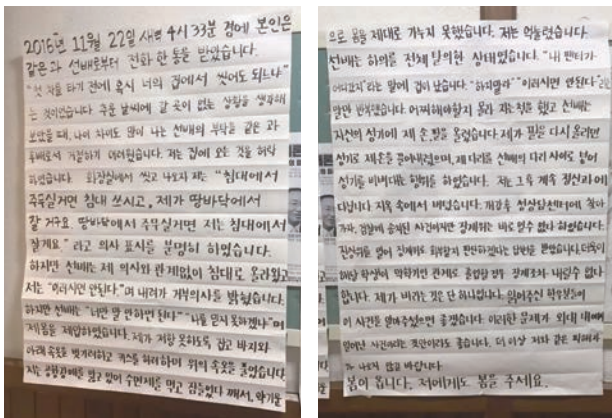 2016년 11월 22일 새벽 4시 33분 경에 본인은
같은 과 선배로부터 전화 한 통을 받았습니다.
"첫 차를 타기 전에 혹시 너의 집에서 씻어도 되느냐"
는 것이었습니다. 추운 날씨에 갈 곳이 없는 상황을 생각해
보았을 때, 나이 차이도 많이 나는 선배의 부탁을 같은 과
후배로서 거절하기 어려웠습니다. 저는 집에 오는 것을 허락
하였습니다. 화장실에서 씻고 나오자 저는 "침대에서
주무실거면 침대 쓰시고, 제가 땅바닥에서
잘거구요. 땅바닥에서 주무실거면 저는 침대에서
잘게요" 라고 의사 표시를 분명히 하였습니다.
하지만 선배는 제 의사와 관계없이 침대로 올라왔고
저는 "이러시면 안된다"며 내려가 거부의사를 밝혔습니다.
하지만 선배는 "너만 말 안하면 된다" "나를 믿지 못하겠냐"며
제 몸을 제압하였습니다. 제가 저항 못하도록 잡고 바지와
아래 속옷도 벗기려하고 키스를 하려하며 위의 속옷을 풀었습니다.
저는 공황장애를 앓고 있어 수면제를 먹고 잠들었다 깨서, 약기운
으로 몸을 제대로 가누지 못했습니다. 저는 억눌렸습니다.
선배는 하의를 전체 탈의한 상태였습니다. "내 팬티가
어디갔지"라는 말에 겁이 났습니다. "하지말라" "이러시면 안된다"
말만 반복했습니다. 어찌해야할지 몰라 자는척을 했고 선배는
자신의 성기에 제 손을 올렸습니다. 제가 팔을 다시 올리면
성기로 제 손을 끌어내렸으며, 제 다리를 선배의 다리 사이로 넣어
성기를 비벼대는 행위를 하였습니다. 저는 그 후 계속 정신과에
다닙니다. 지옥 속에서 버텼습니다. 개강 후 성상담센터에 찾아
가자, 검찰에 송치된 사건이지만 징계위는 바로 할수 없다 하였습니다.
진상위를 열어 징계위로 회부할지 판단하겠다는 답변을 받았습니다. 더욱이
해당 학생이 막학기인 관계로 졸업할 경우 징계조차 내릴수 없다
합니다. 제가 바라는 것은 단 하나입니다. 읽어주신 학우분들이
이 사건을 알아주셨으면 좋겠습니다. 이러한 문제가 외대 내에서
일어난 사건이라는 것만이라도 좋습니다. 더 이상 저와 같은 피해자
가 나오지 않길 바랍니다.
봄이 옵니다. 저에게도 봄을 주세요.